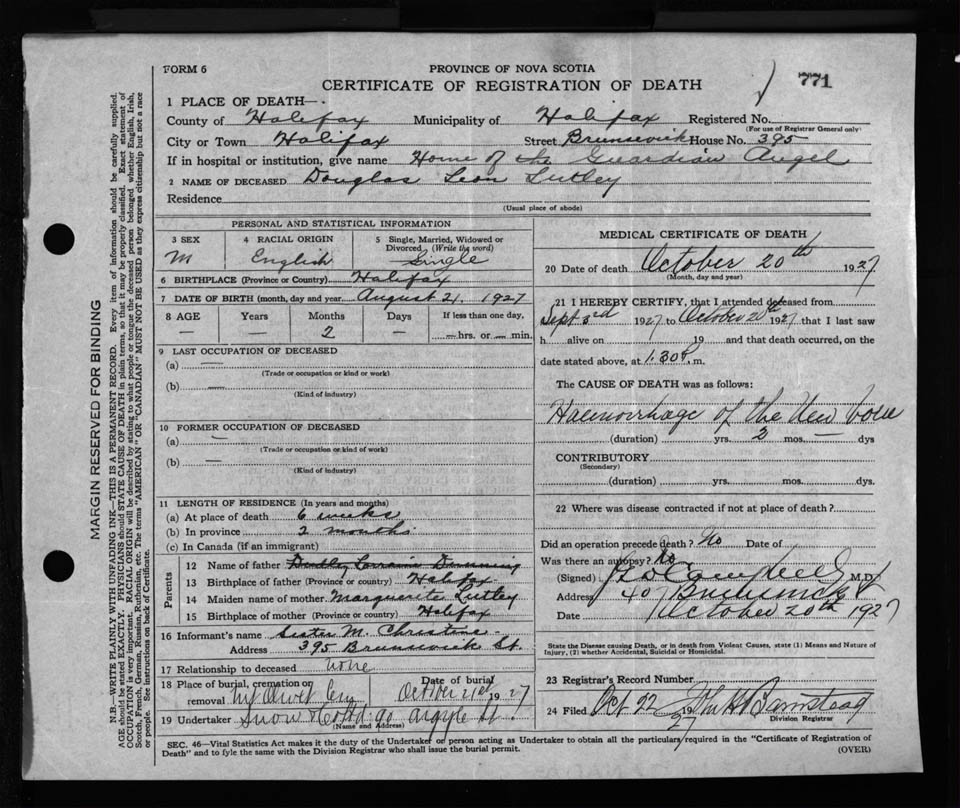 FORM 6
PROVINCE OF NOVA SCOTIA
771
CERTIFICATE OF REGISTRATION OF DEATH
1 PLACE OF DEATH—
County of Halifax Municipality of Halifax Registered No.
(For use of Registrar General only)
City or Town Halifax Street Brunswick House No. 395
If in hospital or institution, give name Home of the Guardian Angel
2 NAME OF DECEASED Douglas Leon Lutley
Residence
(Usual place of abode)
PERSONAL AND STATISTICAL INFORMATION
3 SEX 4 RACIAL ORIGIN 5 Single, Married, Widowed or Divorced (Write the word)
M English Single
6 BIRTHPLACE (Province or Country) Halifax
7 DATE OF BIRTH (month, day and year) August 21. 1927
8 AGE Years Months Days If less than one day,
— 2 — — hrs. or — min.
9 LAST OCCUPATION OF DECEASED
(a) —
(Trade or occupation or kind or work)
(b) —
(Kind of industry)
10 FORMER OCCUPATION OF DECEASED
(a) —
(Trade or occupation or kind of work)
(b) —
(Kind of industry)
11 LENGTH OF RESIDENCE (In years and months)
(a) At place of death 6 weeks
(b) In province 2 months
(c) In Canada (if an immigrant)
Parents
12 Name of father Dudley Lorraine Dunning
13 Birthplace of father (Province or country) Halifax
14 Maiden name of mother Marguerite Lutley
15 Birthplace of mother (Province or country) Halifax
16 Informant's name Sister M. Christine
Address 395 Brunswick St.
17 Relationship to deceased none
18 Place of burial, cremation or removal Mt Olivet Cem Date of burial October 21st 1927
19 Undertaker Snow 90 Argyle St.
(Name and Address)
MEDICAL CERTIFICATE OF DEATH
20 Date of death October 20th 1927
(Month, day and year)
21 I HEREBY CERTIFY, that I attended deceased from
Sept 3rd 1927 to October 20th 1927 that I last saw
h alive on 19 and that death occurred, on the
date stated above, at 1.30 P. m.
The CAUSE OF DEATH was as follows:
Haemorrhage of the New born
(duration) yrs. 2 mos. — dys
CONTRIBUTORY
(Secondary)
(duration) yrs. mos. dys.
22 Where was disease contracted if not at place of death?
Did an operation precede death? No Date of
Was there an autopsy? No
(Signed) Campbell M.D.
Address 407 Brunswick St
Date October 20th 1927
State the Disease Causing Death, or in death from Violent Causes, state (1) Means and Nature of
Injury, (2) whether Accidental, Suicidal or Homicidal.
23 Registrar's Record Number
24 Filed Oct 22 1927 Barnstead
Division Registrar
SEC. 46—Vital Statistics Act makes it the duty of the Undertaker or person acting as Undertaker to obtain all the particulars required in the "Certificate of Registration of
Death" and to fyle the same with the Division Registrar who shall issue the burial permit.
(OVER)
MARGIN RESERVED FOR BINDING
N.B.—WRITE PLAINLY WITH UNFADING INK—THIS IS A PERMANENT RECORD. Every item of information should be carefully supplied.
AGE should be stated EXACTLY. PHYSICIANS should STATE CAUSE OF DEATH in plain terms, so that it may be properly classified. Exact statement of
OCCUPATION is very important. RACIAL ORIGIN will be described by stating to what people or tongue the deceased person belonged whether English, Irish,
Scotch, French, German, Russian, Ruthenian, etc. The terms "AMERICAN" OR "CANADIAN" MUST NOT BE USED as they express citizenship but not a race
or people. See instructions on back of Certificate.